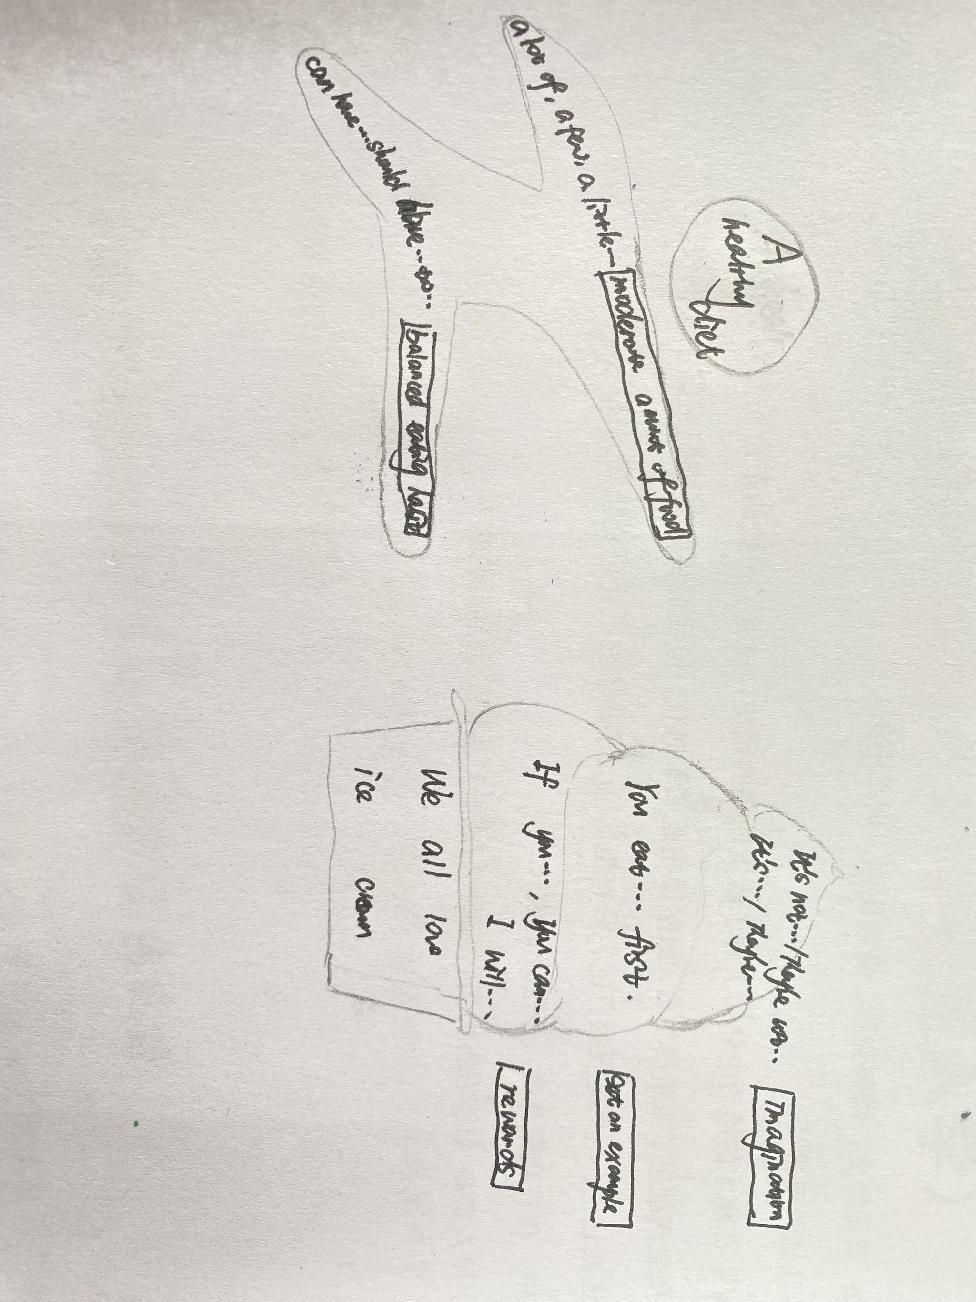 A
healthy
diet
a lot of, a few, a little—
moderate amount of food
can have...should have...
balanced eating habit
It's not.../They're not...
It's.../They're...
Imagination
You eat... first.
Set an example
If you..., you can...
I will...
rewards
We all love
ice cream